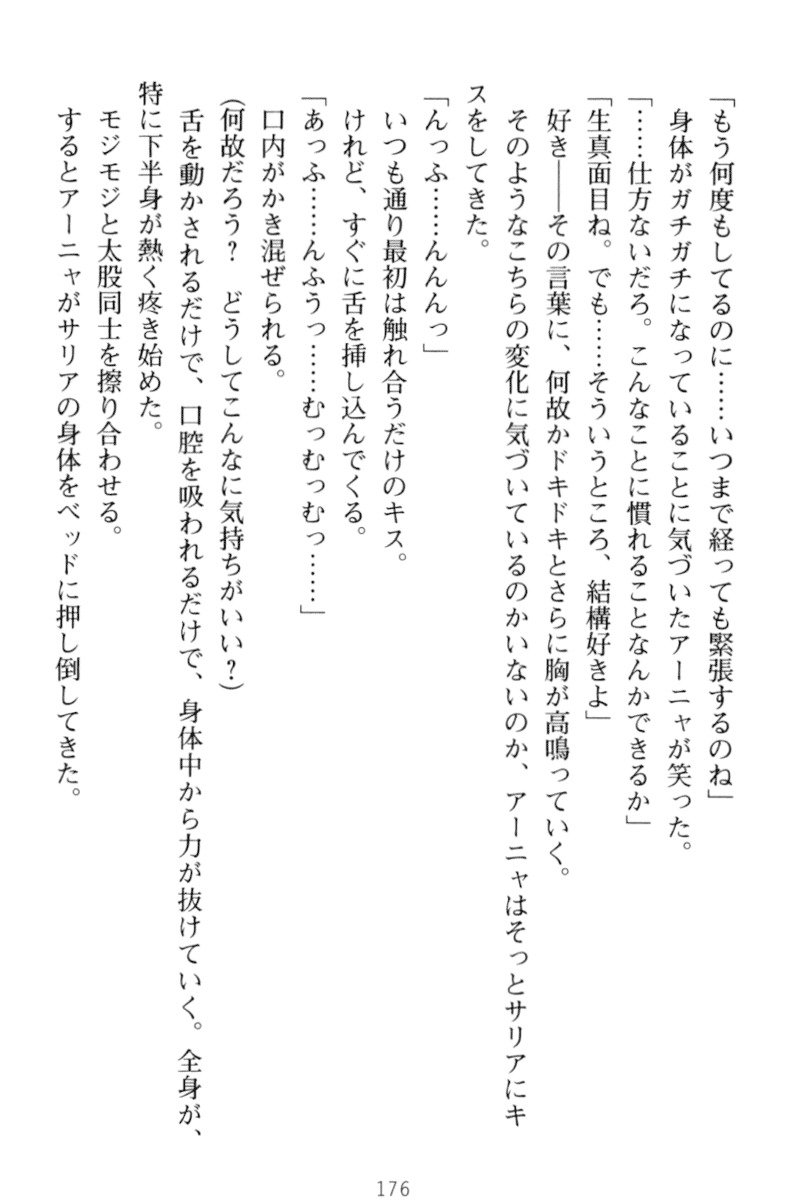 「もう何度もしてるのに……いつまで経っても緊張するのね」
身体がガチガチになっていることに気づいたアーニャが笑った。
「……仕方ないだろ。こんなことに慣れることなんかできるか」
「生真面目ね。でも……そういうところ、結構好きよ」
好き――その言葉に、何故かドキドキとさらに胸が高鳴っていく。
そのようなこちらの変化に気づいているのかいないのか、アーニャはそっとサリアにキ
スをしてきた。
「んっふ……んんんっ」
いつも通り最初は触れ合うだけのキス。
けれど、すぐに舌を挿し込んでくる。
「あっふ……んふうっ……むっむっむっ……」
口内がかき混ぜられる。
(何故だろう?　どうしてこんなに気持ちがいい?)
舌を動かされるだけで、口腔を吸われるだけで、身体中から力が抜けていく。全身が、
特に下半身が熱く疼き始めた。
モジモジと太股同士を擦り合わせる。
するとアーニャがサリアの身体をベッドに押し倒してきた。
176